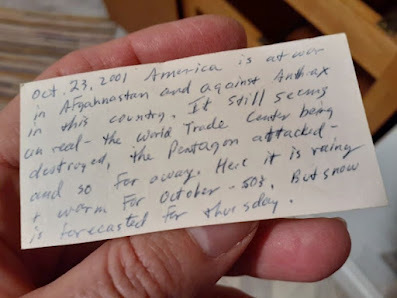 Oct. 23, 2001 America is at war
in Afgahnastan and against Anthrax
in this country. It still seems
un real - the World Trade Center being
destroyed, the Pentagon attacked -
and so far away. Here it is rainy
+ warm for October - 50s. But snow
is forecasted for thursday.